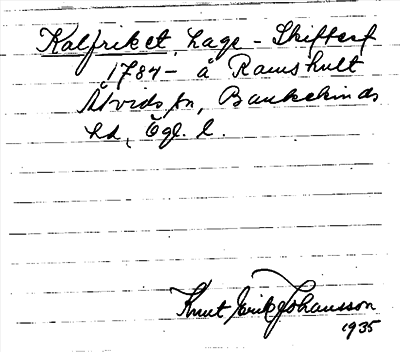 Kalfriket, Lage-Skifteсf
1784- å Ramshult
Åtvids sn, Bankekinds
hd, Ögl. l.
Knut Erik Johansson
1935